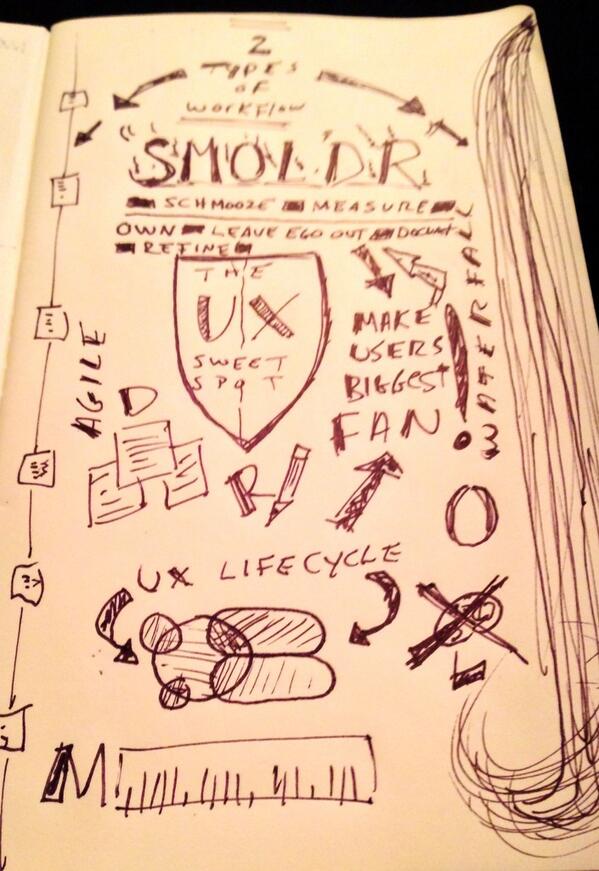 2
TYPES
OF
WORKFLOW
"SMOLDR
SCHMOOZE MEASURE
OWN LEAVE EGO OUT
REFINE
THE
UX
SWEET
SPOT
MAKE
USERS
BIGGEST
FAN!
AGILE
WATERFALL
D
R
O
UX LIFECYCLE
L
M